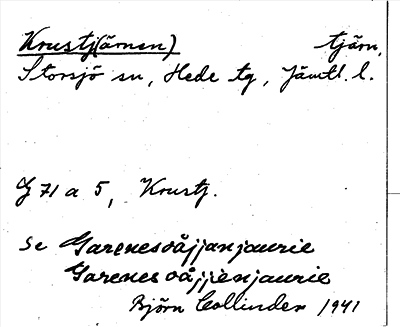 Krustj(ärnen) tjärn,
Storsjö sn, Hede tg, Jämtl. l.
G 71 a 5, Krustj.
Se Garenesoåjjanjaurie
Garenes oåjjienjaurie
Björn Collinder 1941